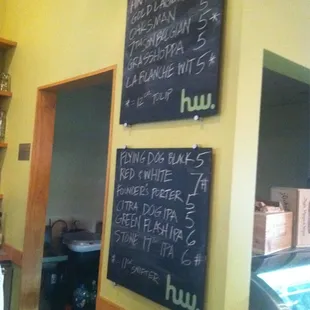 GOLD 5
OARSMAN 5
BELGIAN 5*
GRASSHOPPA 5
LA FLANCHE WIT 5*
* = 12oz TULIP
hw.
FLYING DOG BLACK 5
RED & WHITE 7*
FOUNDER'S PORTER 5
CITRA DOG IPA 5
GREEN FLASH IPA 6
STONE 17TH IPA 6*
* = 11oz SNIFTER
hw.